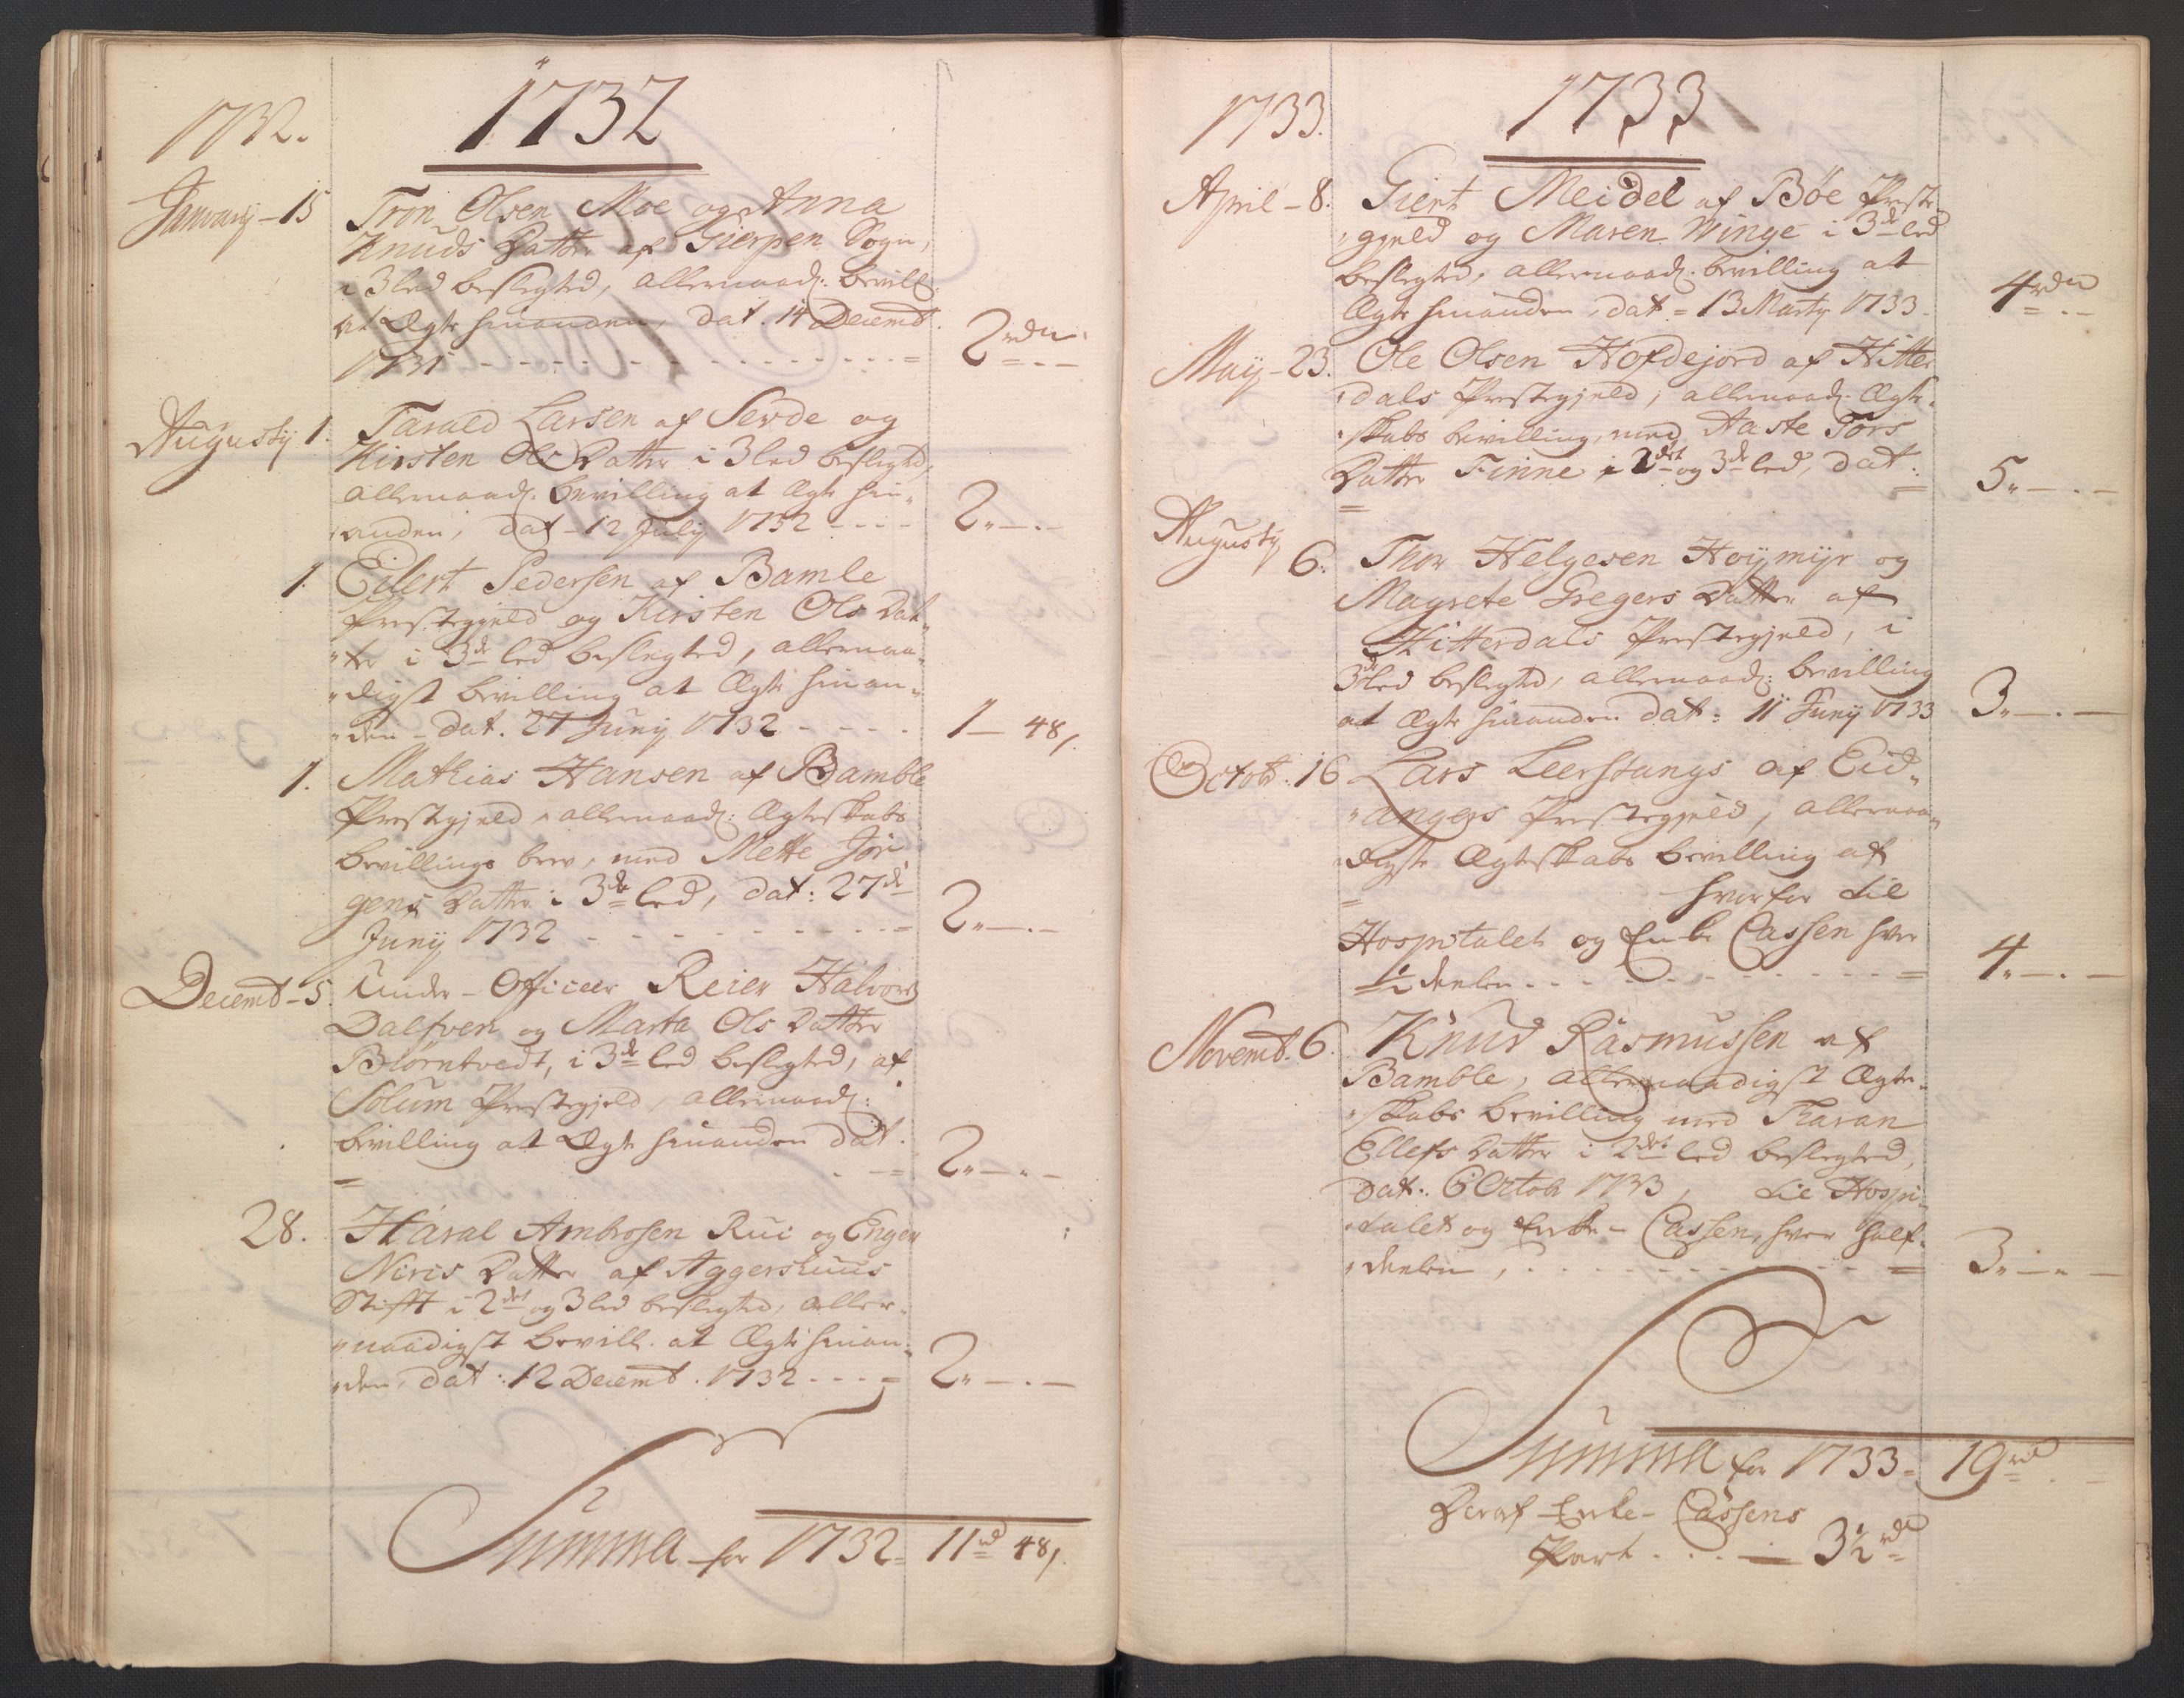 1732
1732.
January - 15 Tron Olsen Moe og Anna
Knuds Datter af Gierpen Sogn,
i 3 led beslegted, allernaad: bevill:
at Ægte hinanden, dat. 14 Decemb.
1731 - - - - - - - - - - - = 2 rdr
Augusty 1. Tarald Larsen af Serde og
Kirsten Ols Datter i 3 led beslegted,
allernaad: bevilling at Ægte hin-
"anden, dat - 12 July 1732 - - - - 2.-.-
1. Eilert Pedersen af Bamle
Prestegjeld og Kirsten Ols Dat-
"ter i 3de led beslegted, allernaa-
"digst bevilling at Ægte hinan-
"den - dat. 27 Juny 1732 - - - - 1 - 48,
1. Mathias Hansen af Bamble
Prestegjeld, allernaad: Ægteskabs
bevillings brev, med Mette Jør
gens Datter i 3de led, dat: 27de
Juny 1732 - - - - - - - - = 2.-.-
Decemb - 5. Under - Officeer Reier Halvors
Dalsven og Marta Ols Datter
Biørntvedt, i 3de led beslegted, af
Solum Prestegjeld, allernaad:
bevilling at Ægte hinanden dat.
= - = 2.-.-
28. Haral Ambrosen Rui og Engen
Niris Datter af Aggershuus
Stift i 2det og 3 led beslegted, aller-
"naadigst bevill. at Ægte hinan-
"den, dat: 12 Decemb. 1732 - - - = 2.-.-
Summa for 1732 = 11 rd 48,
1733
1733.
April - 8. Giert Meidel af Bøe Preste-
"gjeld og Maren Winge i 3de led
beslegted, allernaad: bevilling at
Ægte hinanden, dat = 13 Marty 1733. 4 rdr
May - 23. Ole Olsen Hofdejord af Hitter
"dals Prestegjeld, allernaad: Ægte-
"skabs bevilling, med Aaste Tors
Datter Finne i 2det og 3de led, dat:
= = 5.-.-
Augusty
6. Thor Helgesen Hoÿmÿr og
Magrete Gregers Datter af
Hitterdals Prestegjeld, i
3de led beslegted, allernaad: bevilling
at Ægte hinanden dat: 11 Juny 1733 3.-.-
Octob: 16 Lars Leerstangs af Eid-
"angers Prestegjeld, allernaa-
digste Ægteskabs bevilling af
= hvorfor til
Hospitalet og Enke Cassen hver
½ deelen - - - - - - - = 4.-.-
Novemb. 6. Knud Rasmussen af
Bamble, allernaadigst Ægte-
"skabs bevilling med Karan
Ellefs Datter i 2det led beslegted,
dat: 6 Octob 1733, til Hospi-
"talet og Enke - Cassen, hver half-
"deelen, - - - - - - - = 3.-.-
Summa for 1733 = 19 rd
Deraf Enke - Cassens
Part - - - 3½ rd